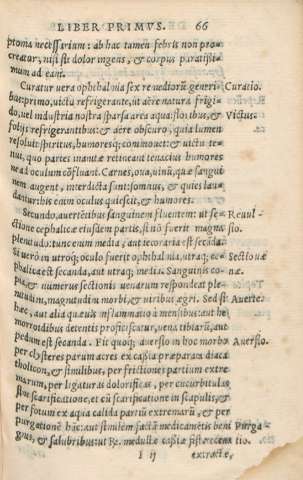 LIBER PRIMVS. 66
ptoma necessarium: ab hac tamen febris non pro-
creatur, nisi sit dolor ingens, & corpus paratissi-
mum ad eam.
Curatur vera ophthalmia sex remediorũ generi- Curatio.
bus: primo, victu refrigerante, ut aëre natura frigi-
do, vel industria nostra sparsa area aqua, floribus, & Victus.
folijs refrigerantibus: & aëre obscuro, quia lumen
resoluit spiritus, humoresq; commouet: & victu te-
nui, quo partes inanitæ retineant tenacius humores
ne ad oculum cõfluant. Carnes, oua, uinũ, quæ sangui
nem augent, interdicta sunt: somnus, & quies lau-
dantur: bis enim oculus quiescit, & humores.
Secundo, auertẽtibus sanguinem fluentem: ut se- Reuul-
ctione cephalicæ eiusdem partis, si nõ fuerit magna sio.
plenitudo: tunc enim media, aut iecoraria est secãda.
Si uerò in utroq; oculo fuerit ophthalmia, utraq; ce- Sectio uæ
phalica est secanda, aut utraq; media. Sanguinis co- næ.
pia, & numerus sectionis uenarum respondeat ple-
nitudini, magnitudini morbi, & uiribus ægri. Sed si Auerte.
hæc, aut alia quæuis inflammatio à mensibus: aut he
morrhoidibus detentis proficiscatur, uena tibiarũ, aut
pedum est secanda. Fit quoq; auersio in hoc morbo Auersio.
per clysteres parum acres ex cassia præparam diaca
tholicon, & similibus, per frictiones partium extre
marum, per ligaturas dolorificas, per cucurbitulas
sine scarificatione, et cũ scarificatione in scapulis, &
per fotum ex aqua calida partiũ extremarũ, & per
purgationẽ hãc: aut similem factã medicamẽtis beni Purga
gnis, & salubribus: ut ℞. medullæ cassiæ fistæ recens tio.
I ij extractæ,